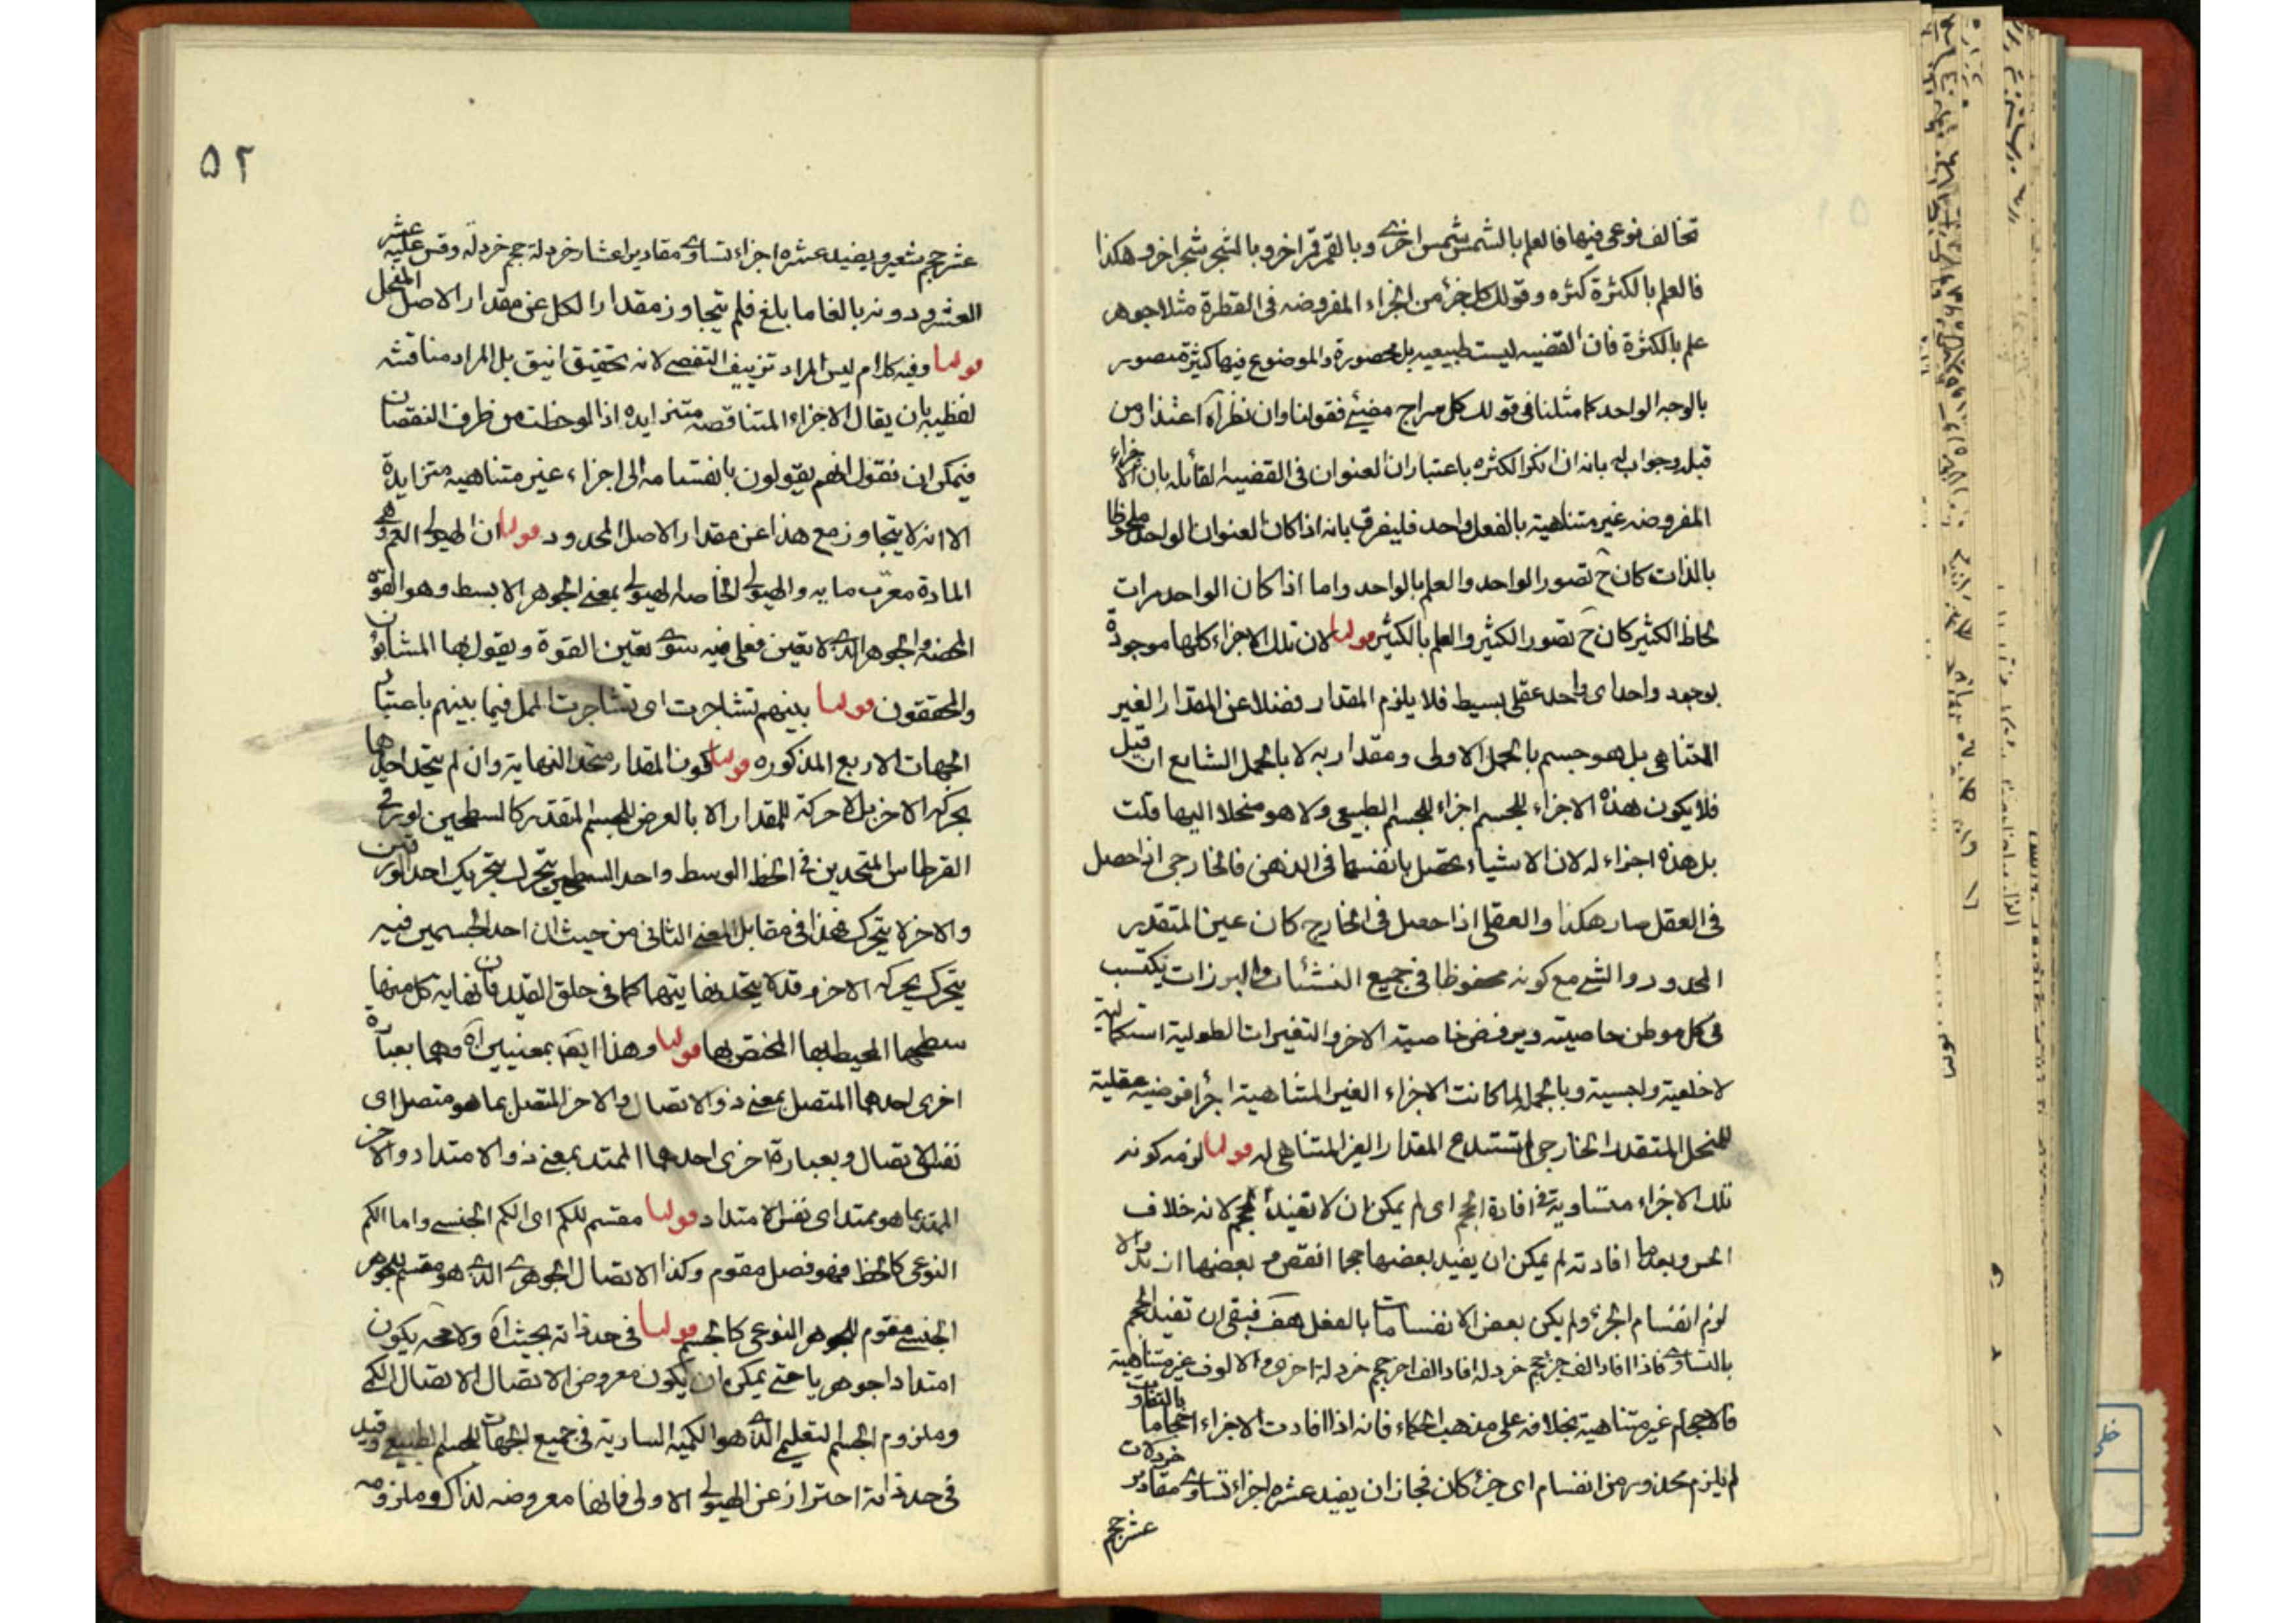 تخالف نوعی فیها فالعلم بالشمس شمس اخری و بالقمر قمر اخر و بالشجر شجر اخر و هکذا
فالعلم بالکثرة کثره و قولک کل جزء من اجزاء المفروضه فی القطرة مثلا جوهر
علم بالکثرة فان القضیه لیست طبیعیه بل محصورة و الموضوع فیها کثیرة متصور
بالوجه الواحد کما مثلنا فی قولک کل سراج مضیئ فقولنا وان نظرآه اعتذار من
قبله و جواب له بانه ان انکر الکثره باعتبار ان العنوان فی القضیه القائله بان الاجزاء
المفروضه غیر متناهیة بالفعل واحد فلیفرق بانه اذا کان العنوان الواحد ملحوظا
بالذات کان ح تصور الواحد و العلم بالواحد و اما اذا کان الواحد مرات
لحاظ الکثیر کان ح تصور الکثیر و العلم بالکثیر قولنا لان تلک الاجزاء کلها موجودة
بوجود واحد ای واحد عقلی بسیط فلا یلزم المقدار فضلا عن المقدار الغیر
المتناهی بل هو جسم بالحمل الاولی و مقدار به لا بالحمل الشایع ان قیل
فلا یکون هذه الاجزاء للجسم اجزاء للجسم الطبیعی ولا هو منحلا الیها قلت
بل هذه اجزاء له لان الاشیاء تحصل بانفسها فی الذهن فالخارجی اذا حصل
فی العقل صار هکذا و العقلی اذا حصل فی الخارج کان عین المتقدر
المحدود و الشئ مع کونه محفوظا فی جمیع النشئات و البرزات یکتسب
فی کل موطن خاصیته و یرفض خاصیة الاخر و التغیرات الطولیة استکمالیة
لا خلعیة و لبسیة و بالجمله لما کانت الاجزاء الغیر المتناهیة اجزا فرضیه عقلیة
للمنحل المتقدر الخارجی لم تستدع المقدار الغیر المتناهی له قولنا لزمه کونه
تلک الاجزاء متساویة فی افادة الحجم ای لم یمکن ان لا تفید الحجم لانه خلاف
الحس و بعد ما افادته لم یمکن ان یفید بعضها حجما انقص من بعضها ازید و الا
لزم انقسام الجزء ولم یکن بعض الانقسامات بالفعل هف فبقی ان تفید الحجم
بالتساوی فاذا افاد الف جزء حجم خردلة افاد الف اخر حجم خردلة اخری و الالوف غیر متناهیة
فالاحجام غیر متناهیة بخلافه علی مذهب الحکماء فانه اذا افادت الاجزاء احجاما بالتفاوت
لم یلزم محذور من انقسام ای جزء کان فجاز ان یفید عشره اجزاء تساوی مقادیر خردلات
عشر حجم
۵۲
عشر حجم شعیر و یفید عشره اجزاء تساوی مقادیر اعشار خردلة حجم خردلة و قس علیه عشر
العشر و دونه بالغا ما بلغ فلم یتجاوز مقدار الکل عن مقدار الاصل المنحل
قولنا و فیه کلام لیس المراد تزییف التفصی لانه تحقیق انیق بل المراد مناقشة
لفظیه بان یقال الاجزاء المتناقصه متزایده اذا لوحظت من طرف النقصان
فیمکن ان نقول انهم یقولون بانقسامه الی اجزاء غیر متناهیه متزایدة
الا انه لا یتجاوز مع هذا عن مقدار الاصل المحدود قولنا ان الهیولی العم و هی
المادة معرب مایه و الهیولی الخاصه الهیولی بمعنی الجوهر الابسط و هو القوة
المحضه و الجوهر الذی لا تعین فعلی فیه سوی تعین القوة و یقول بها المشاؤن
و المحققون قولنا بینهم تشاجرت ای تشاجرت الملل فیما بینهم باعتبار
الجهات الاربع المذکوره قولنا کون المقدار متحد النهایة وان لم یتحد احدها
بحرکة الاخر بل لا حرکة للمقدار الا بالعرض للجسم المتقدر کالسطحین لورقی
القرطاس المتحدین فی الخط الوسط و احد السطحین یتحرک بتحریک احد الورقتین
و الاخر لا یتحرک فهذا فی مقابل المعنی الثانی من حیث ان احد الجسمین فیه
یتحرک بحرکة الاخر و قد لا یتحد نهایتهما کما فی حلق القید فان نهایة کل منها
سطحها المحیط بها المختص بها قولنا و هذا ایضا بمعنیین آه و هما بعبارة
اخری احدهما المتصل بمعنی ذو الاتصال و الاخر المتصل بما هو متصل ای
نفس الاتصال و بعبارة اخری احدهما الممتد بمعنی ذو الامتداد و الاخر
الممتد بما هو ممتد ای نفس الامتداد قولنا مقسم للکم ای الکم الجنسی و اما الکم
النوعی کالخط فهو فصل مقوم و کذا الاتصال الجوهری الذی هو مقسم للجوهر
الجنسی مقوم للجوهر النوعی کالجسم قولنا فی حد ذاته بحیث آه و لا محه یکون
امتدادا جوهریا حتی یمکن ان یکون معروض الاتصال الاتصال الکمی
و ملزوم الجسم التعلیمی الذی هو الکمیه الساریة فی جمیع الجهات للجسم الطبیعی و قید
فی حد ذاته احتراز عن الهیولی الاولی فانها معروضه لذاک و ملزومه